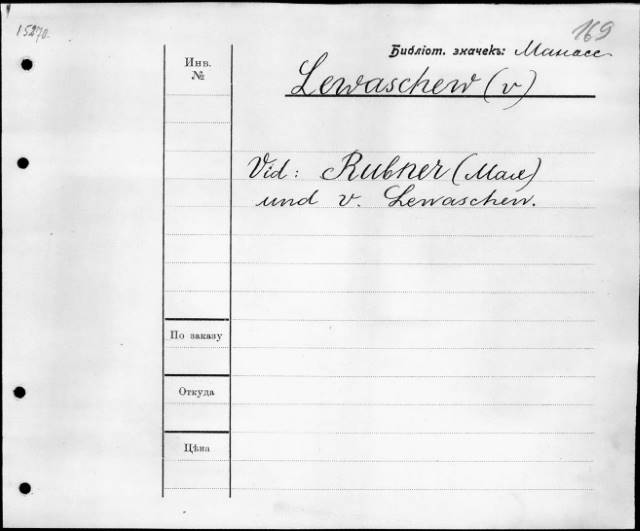 15270.
169
Библіот. значекъ: Манасс
Инв.
№
Lewaschew (v)
Vid: Rubner (Max)
und v. Lewaschew.
По заказу
Откуда
Цѣна